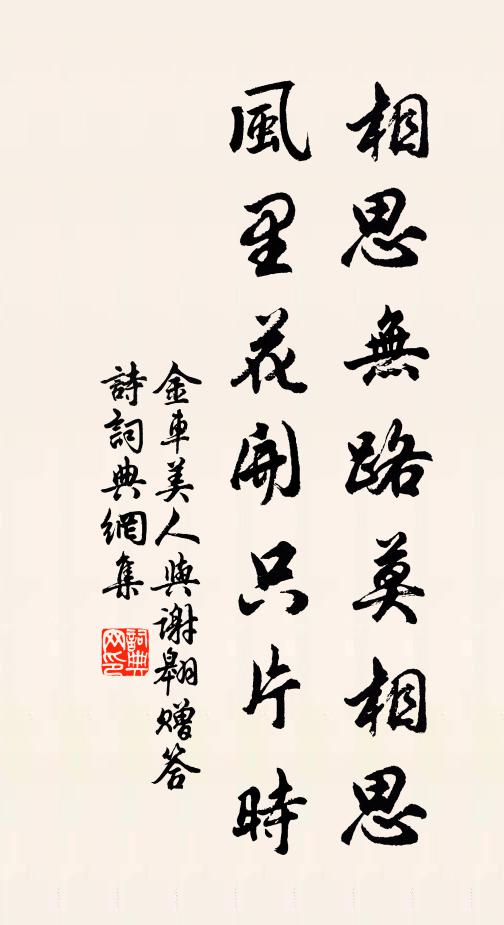 相思無路莫相思
風里花開只片時
金車美人與謝翱贈答
詩詞典網集
詞典
网印